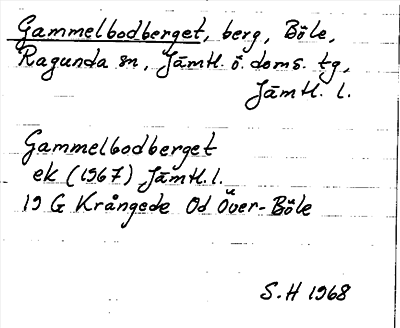 Gammelbodberget, berg, Böle,
Ragunda sn, Jämtl. ö. doms. tg,
Jämtl. l.
Gammelbodberget
ek (1967) Jämtl. l.
19 G Krångede Od Över-Böle
S.H 1968